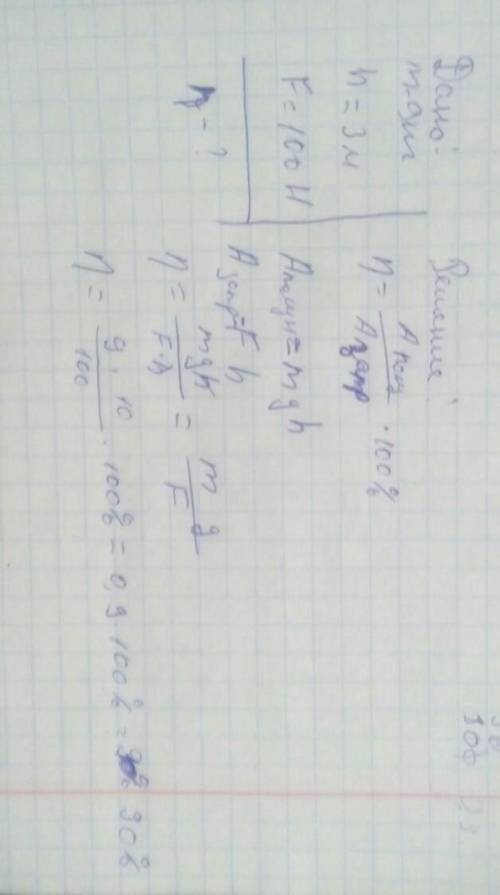 Дано:
h = 3 м
F = 100 Н
η - ?
Решение:
η = Aполез / Aзатр · 100%
Aполезн = mgh
Aзатр = F h
η = mgh / F·h = m g / F
η = 9 · 10 / 100 · 100% = 0,9 · 100% = 90%